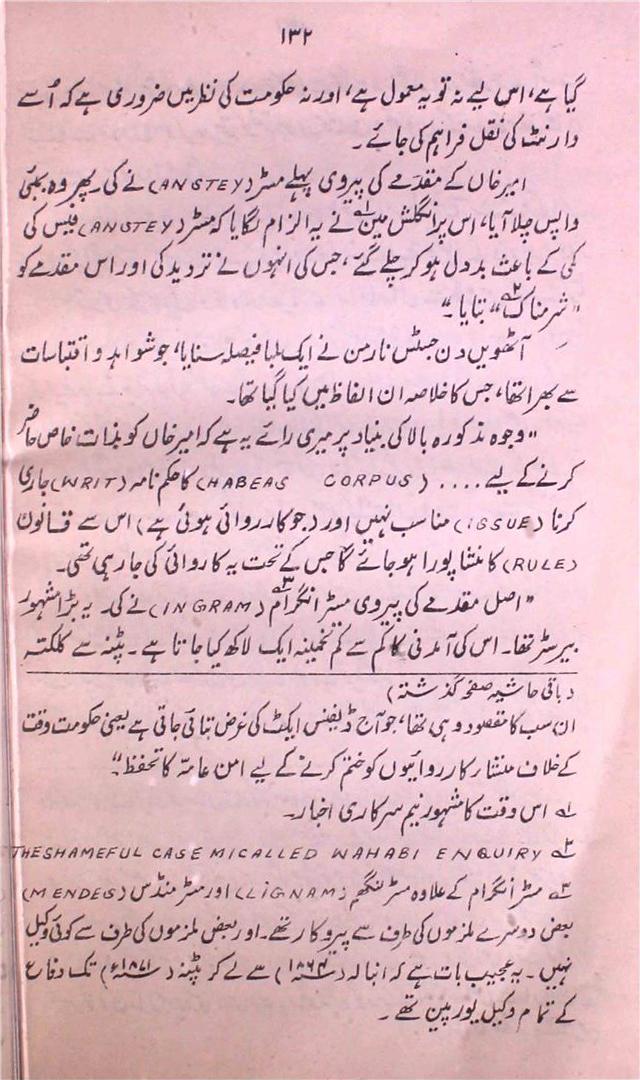 ۱۳۲
گیا ہے، اس لیے نہ تو یہ معمول ہے، اور نہ حکومت کی نظر میں ضروری ہے کہ اُسے
وارنٹ کی نقل فراہم کی جائے۔
امیر خاں کے مقدّمے کی پیروی پہلے مسٹر (ANSTEY) نے کی۔ پھر وہ بمبئی
واپس چلا آیا، اس پر انگلش مین۱ نے یہ الزام لگایا کہ مسٹر (ANSTEY) فیس کی
کمی کے باعث بد دل ہو کر چلے گئے، جس کی انہوں نے تردید کی اور اس مقدمے کو
"شرمناک۲" بتایا۔"
آٹھویں دن جسٹس نارمن نے ایک لمبا فیصلہ سنایا، جو شواہد و اقتباسات
سے بھرا تھا، جس کا خلاصہ ان الفاظ میں کیا گیا تھا۔
"وجوہ مذکورہ بالا کی بنیاد پر میری رائے یہ ہے کہ امیر خاں کو بذات خاص حاضر
کرنے کے لیے .... (HABEAS CORPUS) کا حکم نامہ (WRIT) جاری
کرنا (ISSUE) مناسب نہیں اور (جو کارروائی ہوئی ہے) اس سے قانون
(RULE) کا منشا پورا ہو جائے گا جس کے تحت یہ کاروائی کی جا رہی تھی۔
"اصل مقدمے کی پیروی مسٹر انگرام۳ (INGRAM) نے کی۔ یہ بڑا مشہور
بیرسٹر تھا۔ اس کی آمدنی کا کم سے کم تخمینہ ایک لاکھ کیا جاتا ہے۔ پٹنہ سے کلکتہ
(باقی حاشیہ صفحہ گذشتہ)
ان سب کا مقصود وہی تھا، جو آج ڈیفنس ایکٹ کی غرض بتائی جاتی ہے یعنی حکومت وقت
کے خلاف منشار کارروایٔوں کو ختم کرنے کے لیے امن عامّہ کا تحفظ۔"
۱ اس وقت کا مشہور نیم سرکاری اخبار۔
۲ THE SHAMEFUL CASE MICALLED WAHABI ENQUIRY
۳ مسٹر انگرام کے علاوہ مسٹر لنگھم (LIGNAM) اور مسٹر منڈس (MENDES)
بعض دوسرے ملزموں کی طرف سے پیروکار تھے۔ اور بعض ملزموں کی طرف سے کوئی وکیل
نہیں۔ یہ عجیب بات ہے کہ انبالہ (۱۸۶۴ء) سے لے کر پٹنہ (۱۸۷۱ء) تک دفاع
کے تمام وکیل یورپین تھے۔